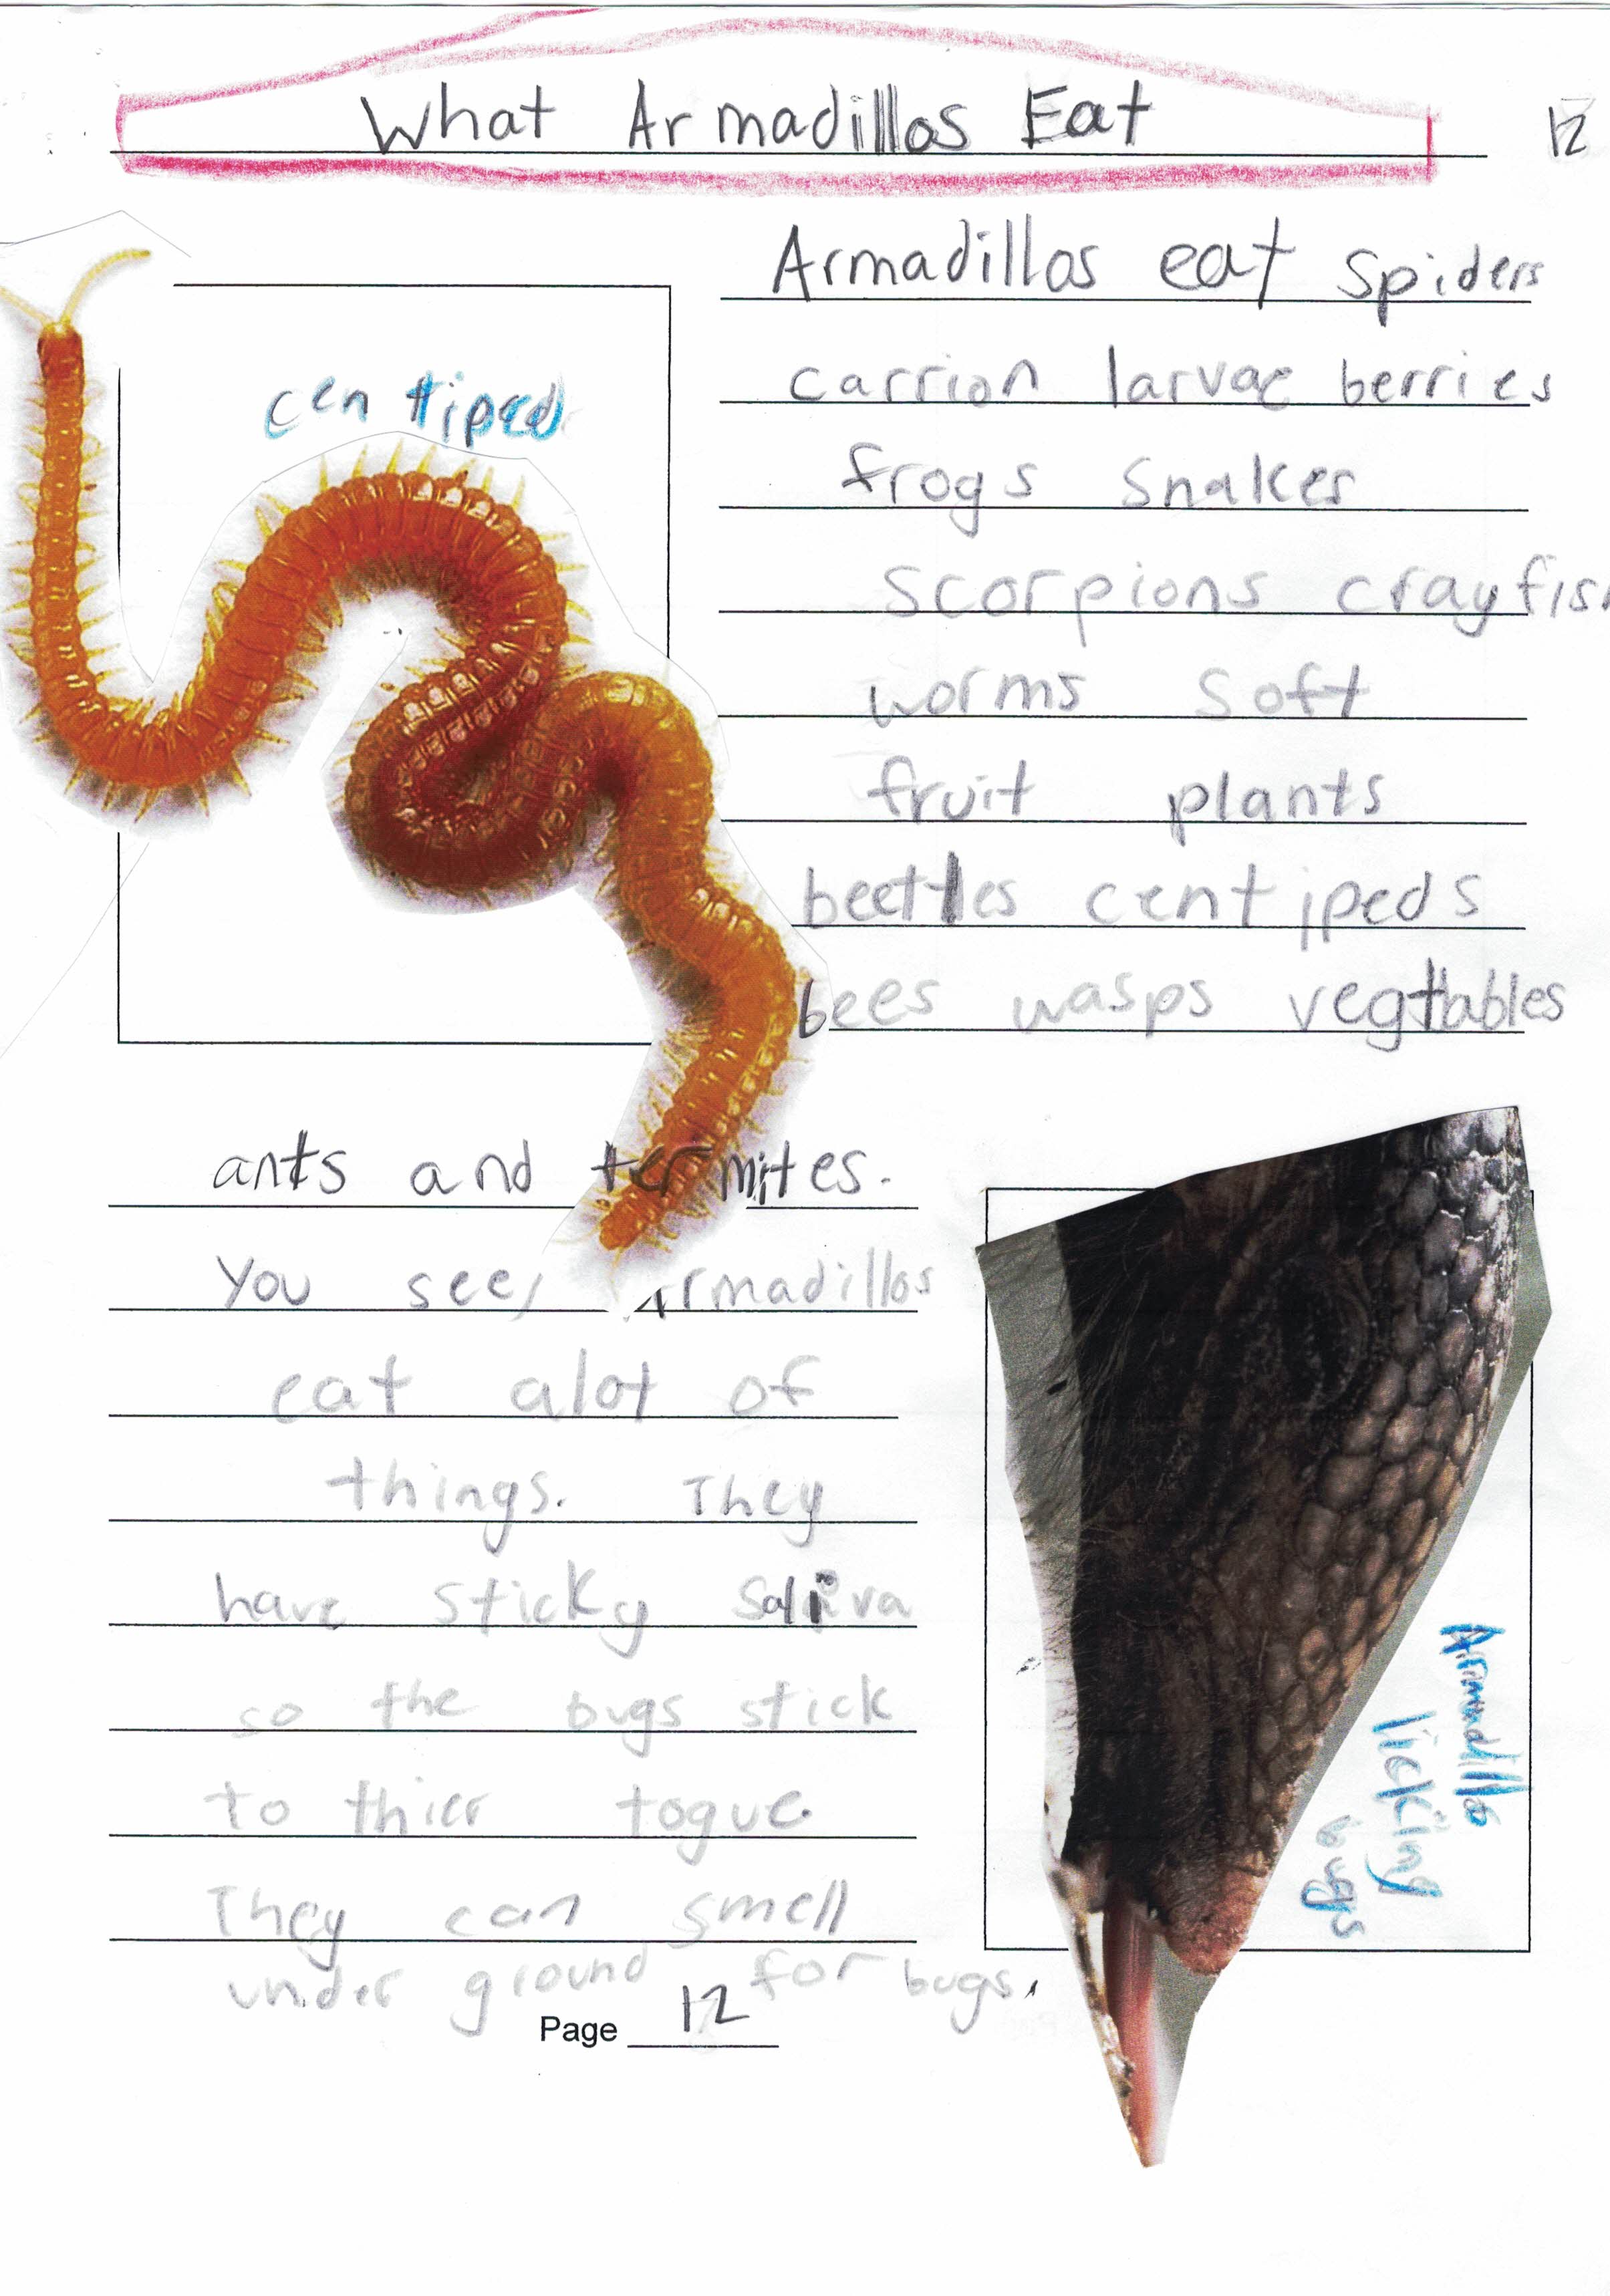 What Armadillos Eat
12
Armadillos eat spiders
carrion larvae berries
frogs snakes
scorpions crayfish
worms soft
fruit plants
beetles centipeds
bees wasps vegtables
centiped
ants and termites.
You see, Armadillos
eat alot of
things. They
have sticky saliva
so the bugs stick
to thier togue
They can smell
under ground for bugs.
Armadillo
licking
bugs
Page 12